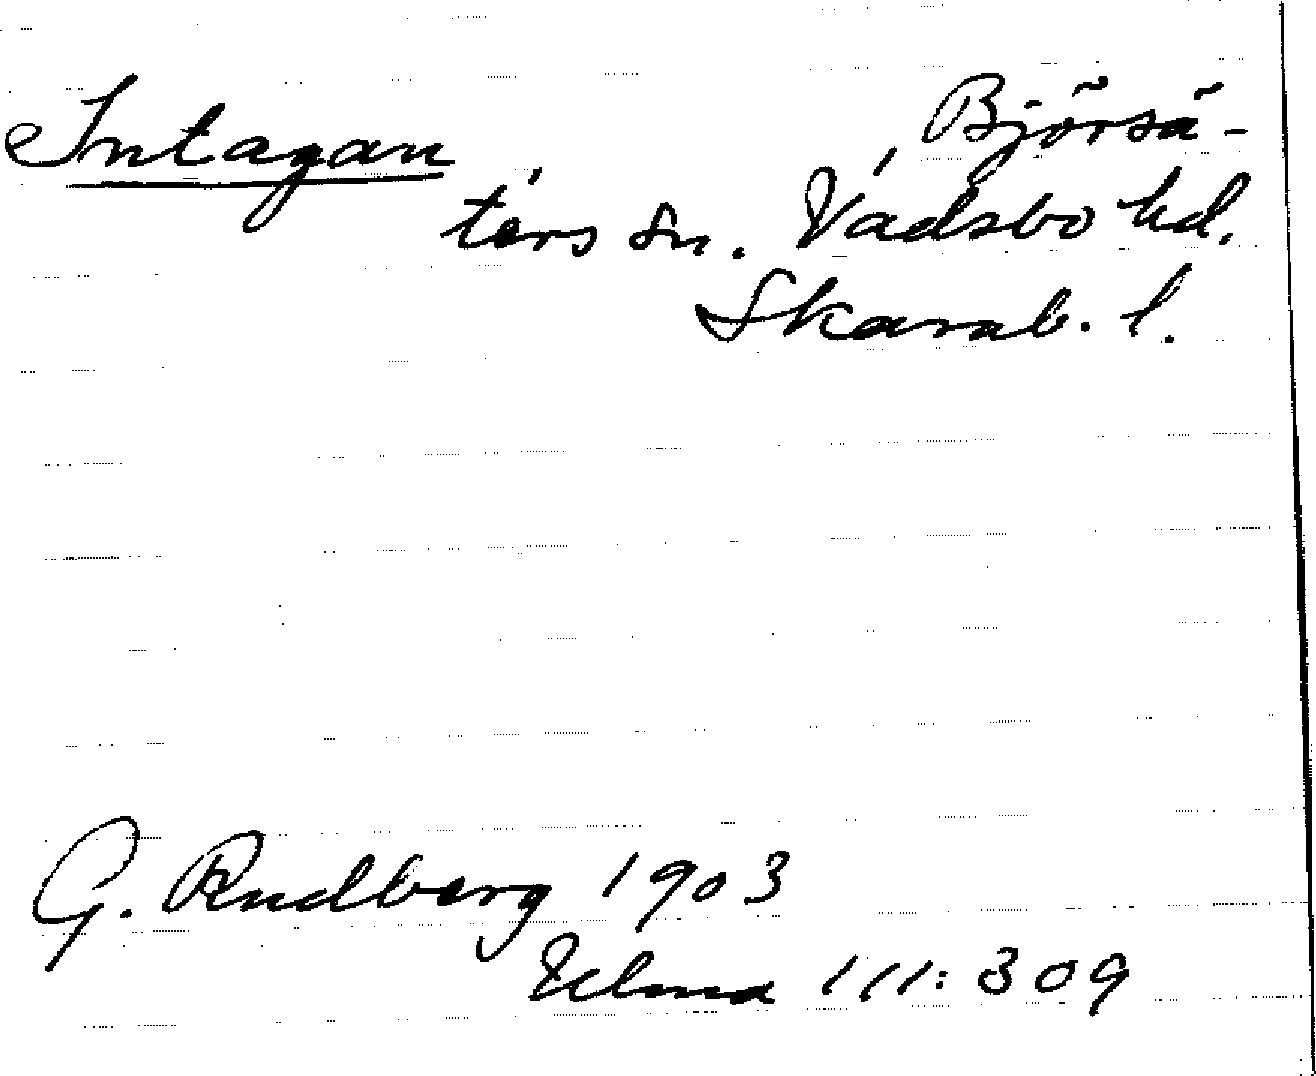 Intagan
Björsä-
ters sn. Vadsbo hd.
Skarab. l.
G. Rudberg 1903
Ulma 111: 309